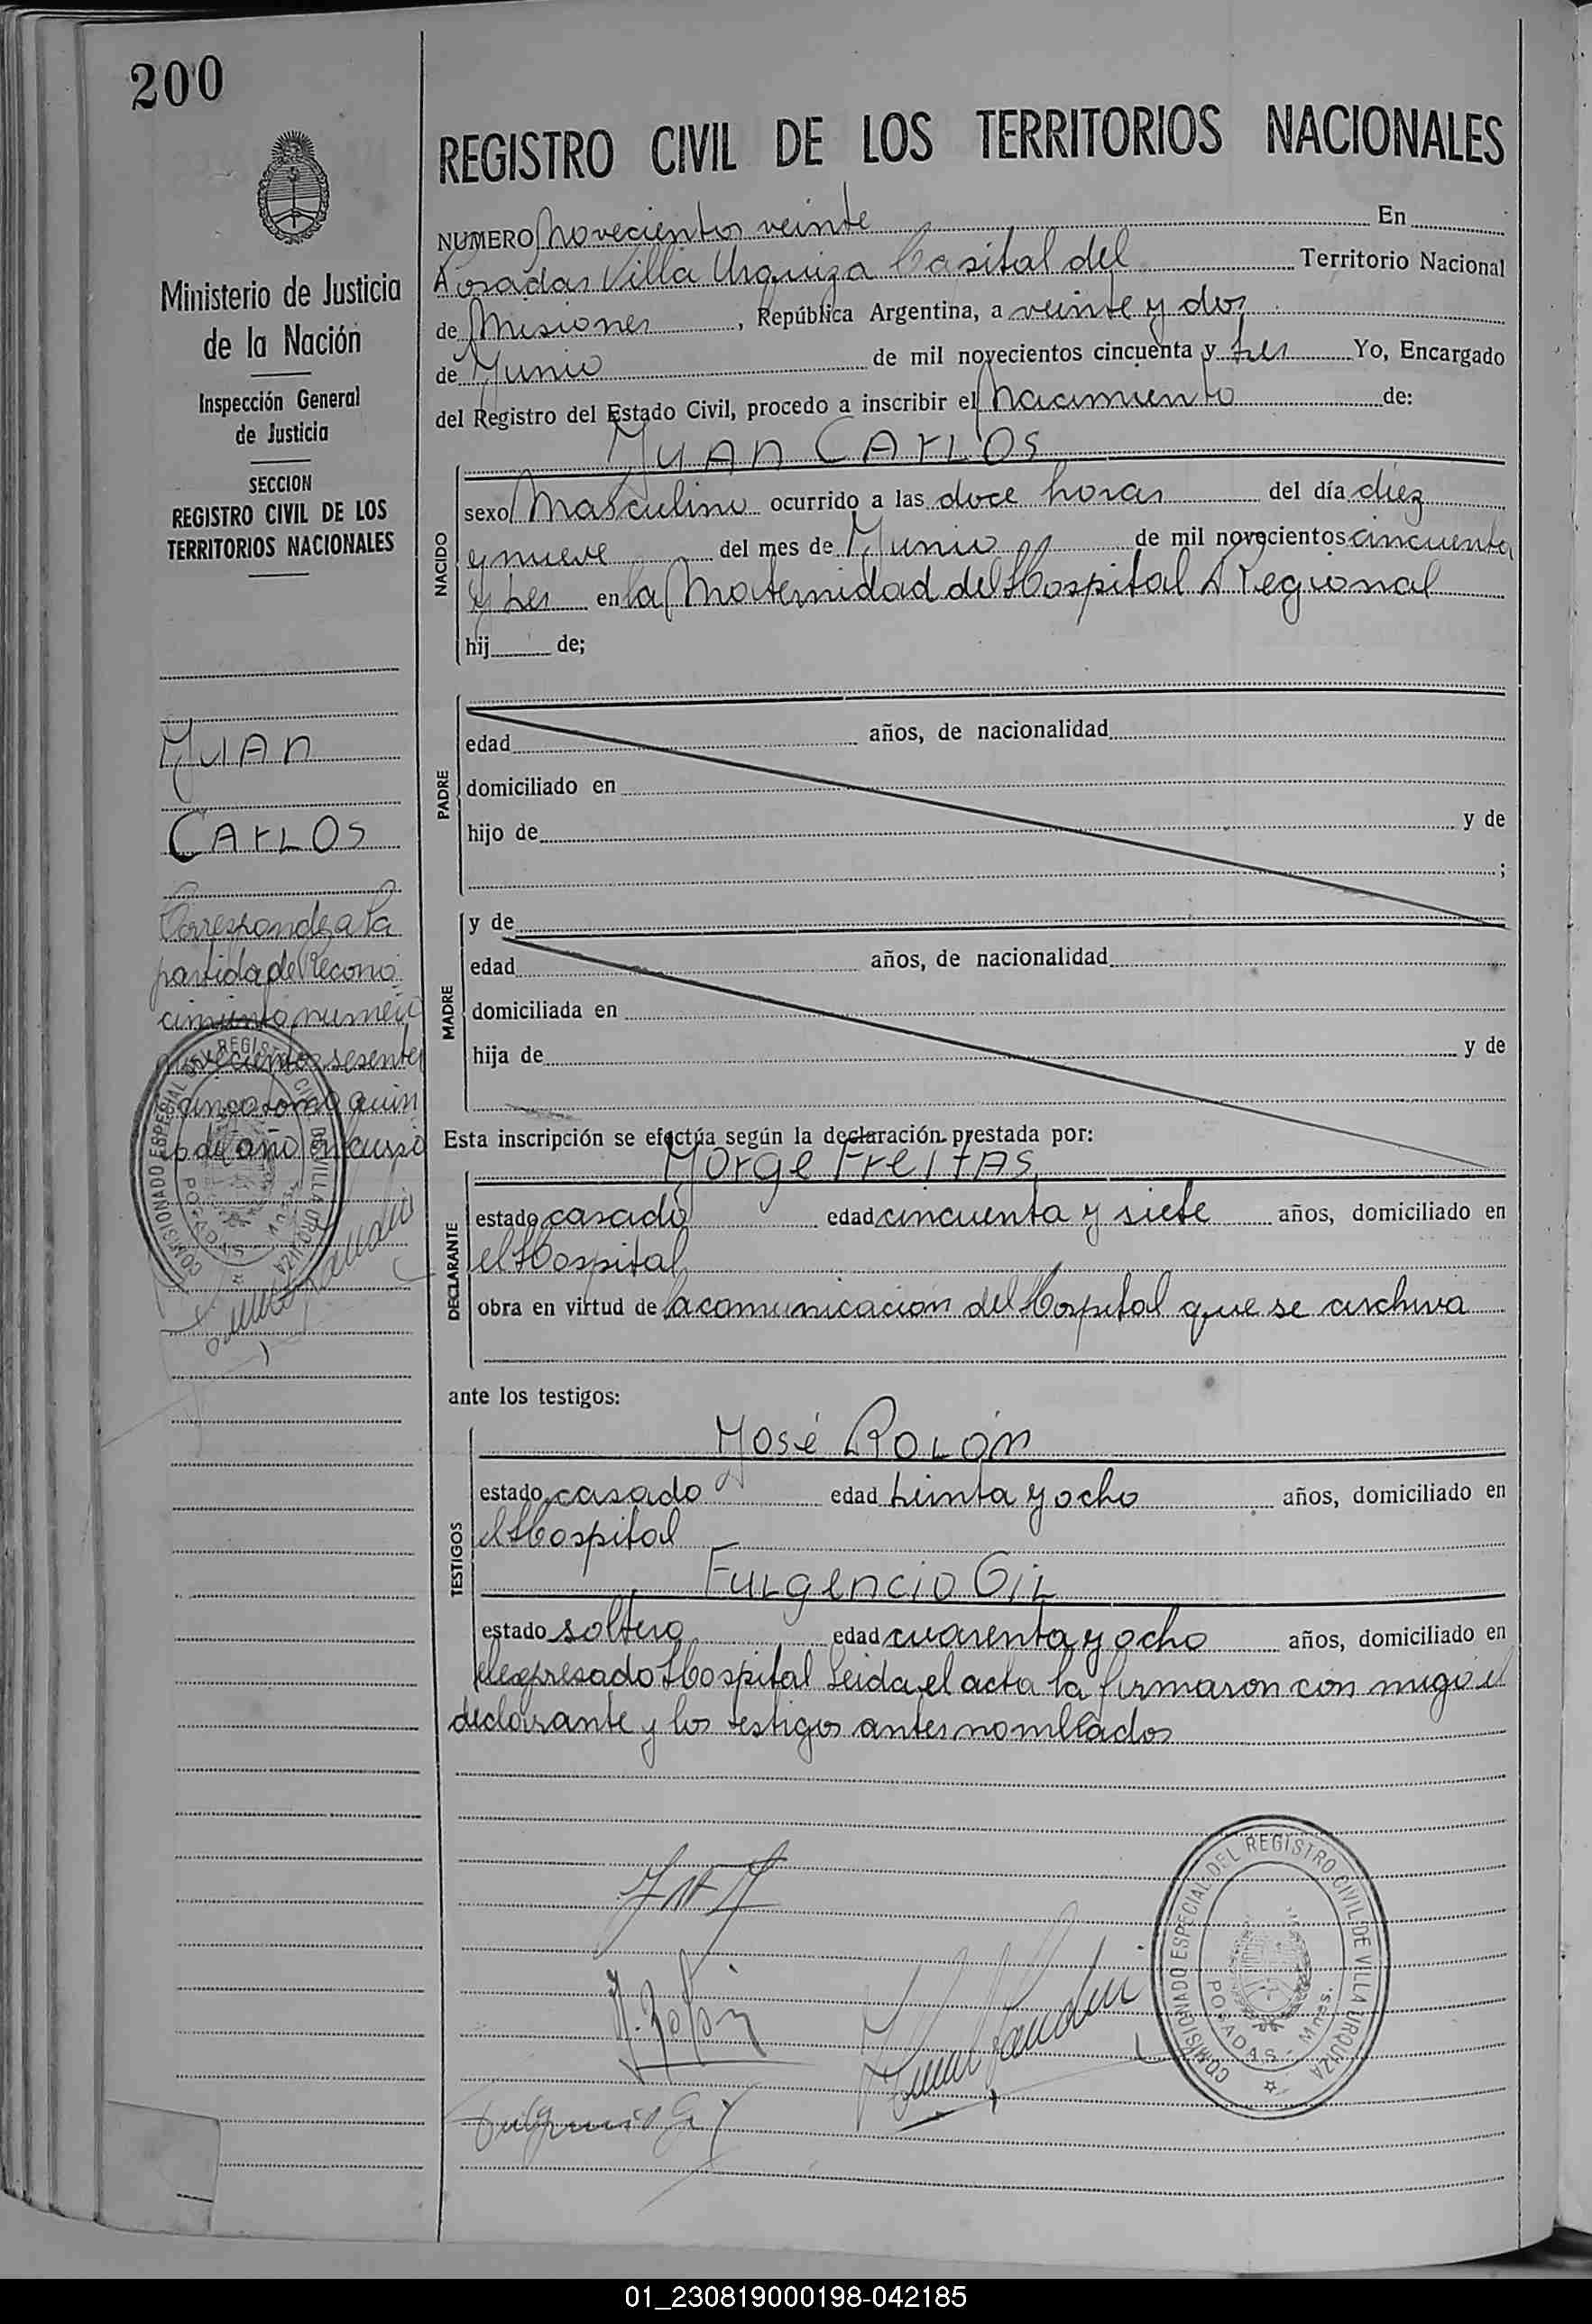 200
REGISTRO CIVIL DE LOS TERRITORIOS NACIONALES
NUMERO Novecientos veinte En
Posadas Villa Urquiza Capital del Territorio Nacional
de Misiones, República Argentina, a veinte y dos
de Junio de mil novecientos cincuenta y tres Yo, Encargado
del Registro del Estado Civil, procedo a inscribir el Nacimiento de:
JUAN CARLOS
NACIDO
sexo Masculino ocurrido a las doce horas del día diez
y nueve del mes de Junio de mil novecientos cincuenta
y tres en la Maternidad del Hospital Regional
hij de;
PADRE
edad años, de nacionalidad
domiciliado en
hijo de y de
;
MADRE
y de
edad años, de nacionalidad
domiciliada en
hija de y de
Esta inscripción se efectúa según la declaración prestada por:
Jorge FreitAS
DECLARANTE
estado casado edad cincuenta y siete años, domiciliado en
el Hospital
obra en virtud de la comunicacion del Hospital que se archiva
ante los testigos:
TESTIGOS
José Rolón
estado casado edad treinta y ocho años, domiciliado en
el Hospital
Fulgencio Gil
estado soltero edad cuarenta y ocho años, domiciliado en
el expresado Hospital Leida el acta la firmaron con migo el
declarante y los testigos antes nombrados
J. Rolón
Fulgencio Gil
COMISIONADO ESPECIAL DEL REGISTRO CIVIL DE VILLA URQUIZA
POSADAS - Mnes.
Ministerio de Justicia
de la Nación
Inspección General
de Justicia
SECCION
REGISTRO CIVIL DE LOS
TERRITORIOS NACIONALES
JUAN
CARLOS
Corresponde a la
partida de Recono
cimiento numero
novecientos sesenta
cinco tomo quin
to del año en curso
COMISIONADO ESPECIAL DEL REGISTRO CIVIL DE VILLA URQUIZA
POSADAS
01_230819000198-042185